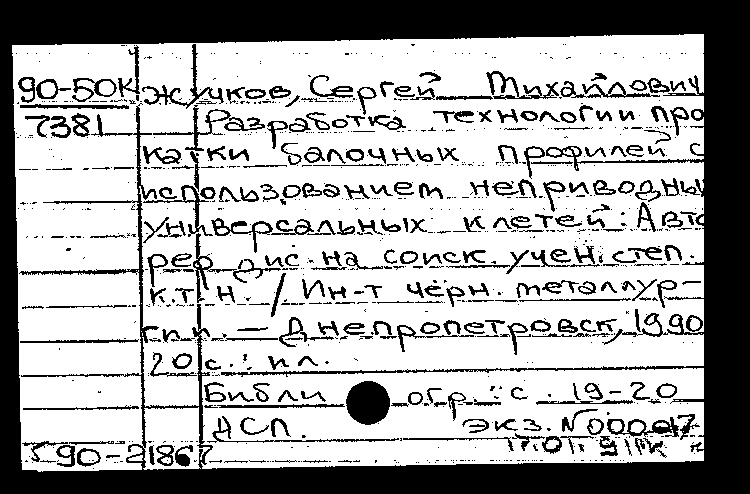 90-50К Жучков, Сергей Михайлович
7381 Разработка технологии про
катки балочных профилей с
использованием неприводны
универсальных клетей: Авто
реф дис. на соиск. учен. степ.
к.т.н. / Ин-т черн. металлур-
гии. — Днепропетровск, 1990
20 с.: ил.
Библи огр.: с. 19-20
ДСП. экз. N 000017
90-21867 17.01.91